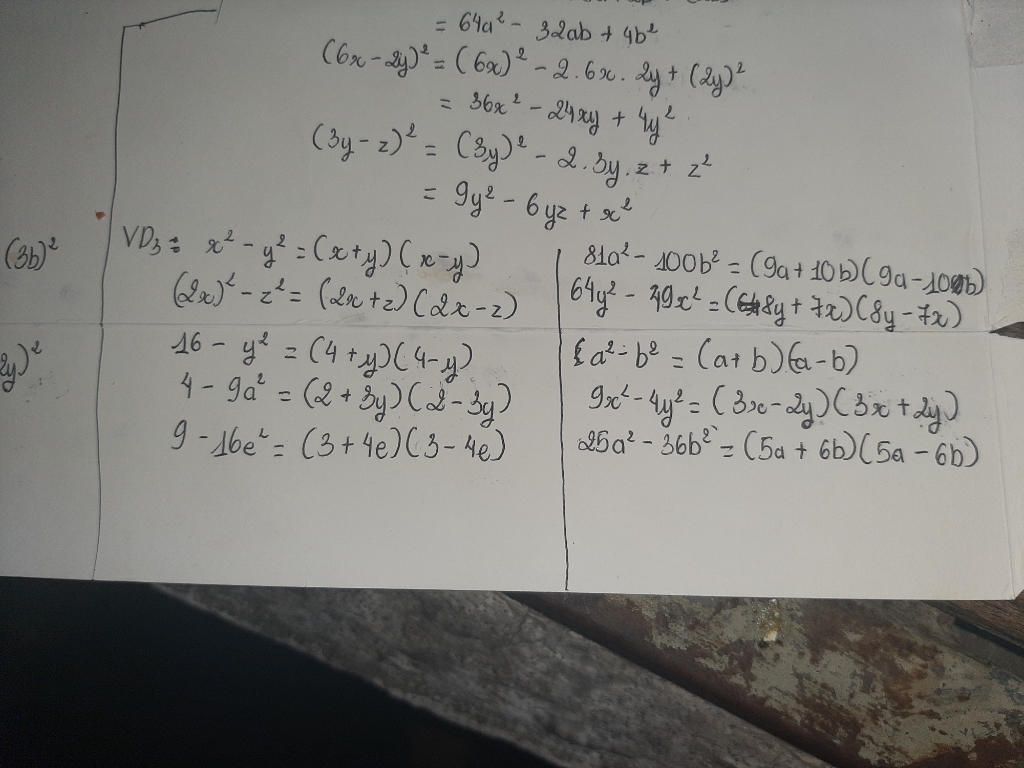 = 64a² - 32ab + 4b²
(6x - 2y)² = (6x)² - 2.6x.2y + (2y)²
= 36x² - 24xy + 4y²
(3y - z)² = (3y)² - 2.3y.z + z²
= 9y² - 6yz + x²
(3b)²
2y)²
VD₃ = x² - y² = (x+y)(x-y)
(2x)² - z² = (2x+z)(2x-z)
16 - y² = (4+y)(4-y)
4 - 9a² = (2+3y)(2-3y)
9 - 16e² = (3+4e)(3-4e)
81a² - 100b² = (9a+10b)(9a-10b)
64y² - 49x² = (8y+7x)(8y-7x)
a² - b² = (a+b)(a-b)
9x² - 4y² = (3x-2y)(3x+2y)
25a² - 36b² = (5a+6b)(5a-6b)